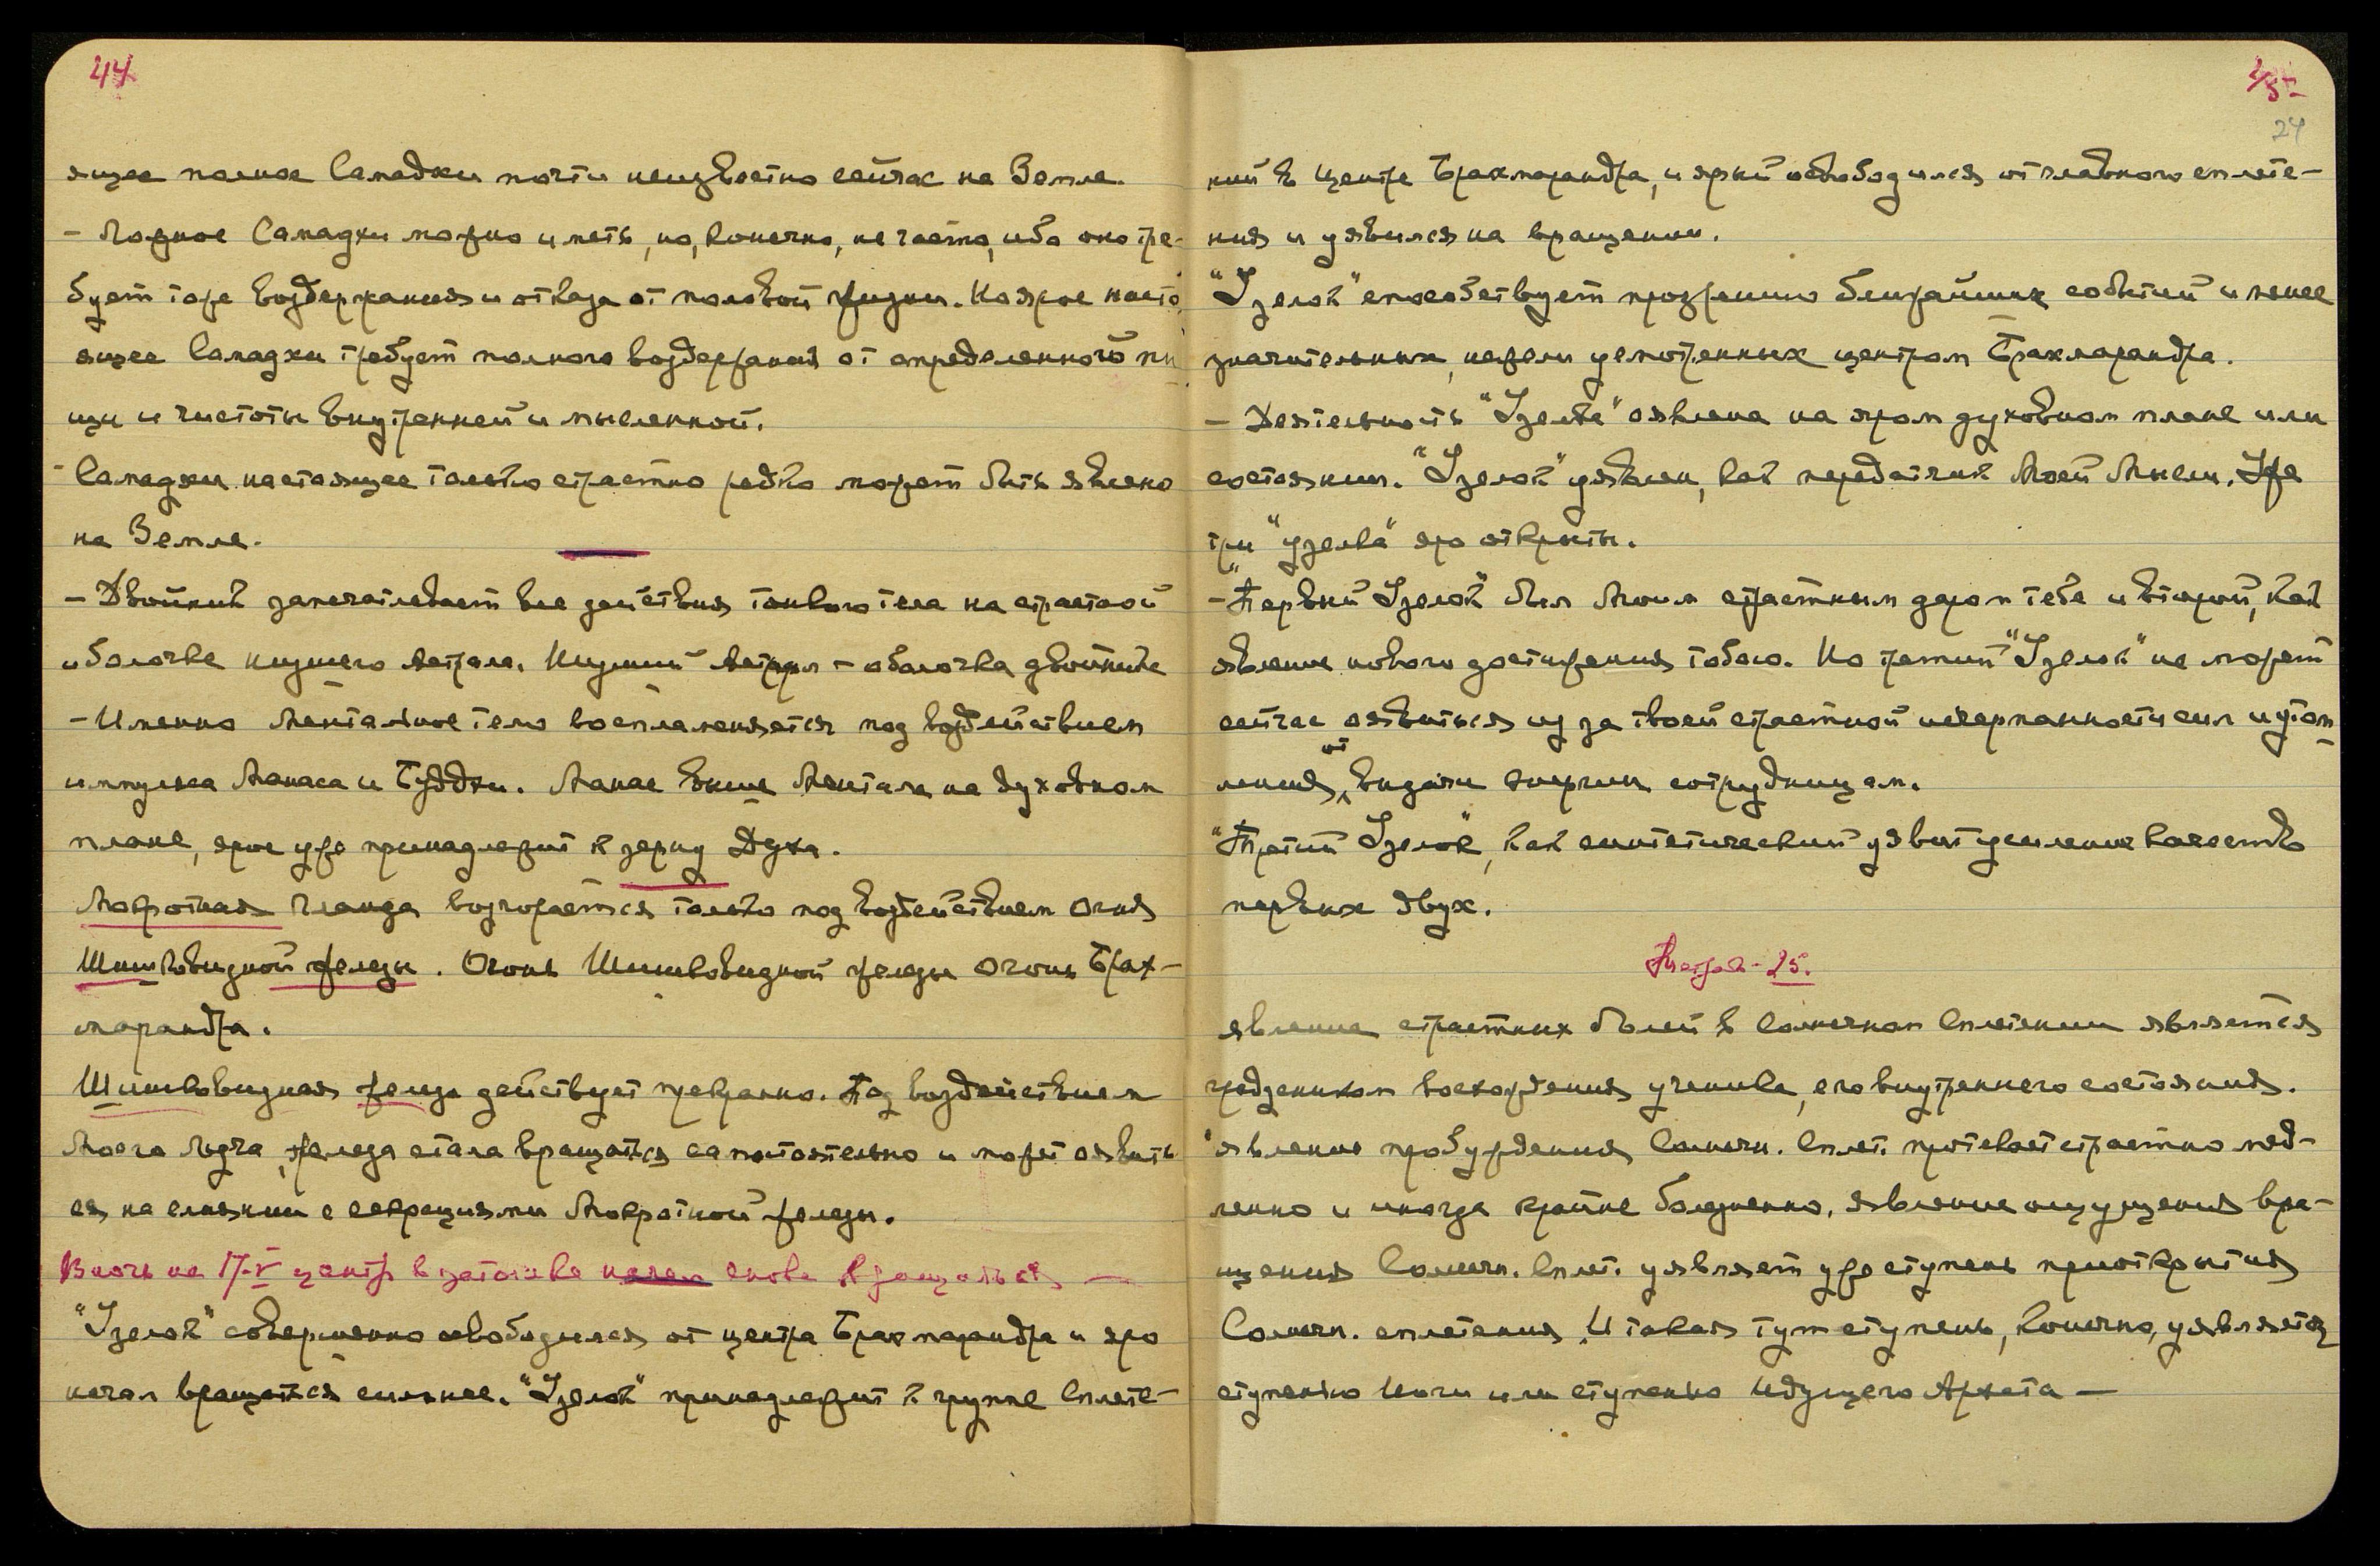 44
ящее полное Самадхи почти неизвестно сейчас на Земле.
– Ложное Самадхи можно иметь, но, конечно, не часто, ибо оно тре-
бует тоже воздержания и отказа от половой жизни. Но ярое насто
ящее Самадхи требует полного воздержания от определенной пи
щи и чистоты внутренней и мысленной.
– Самадхи настоящее только страстно редко может быть явлено
на Земле.
– Двойник запечатлевает все действия тонкого тела на страстной
оболочке низшего астрала. Низший астрал – оболочка двойника
– Именно Ментальное тело воспламеняется под воздействием
импульса Манаса и Буддхи. Манас выше Ментала на духовном
плане, ярое уже принадлежит к зерну Духа.
Мокротная Гланда возгорается только под воздействием огня
Шишковидной железы. Огонь Шишковидной железы огонь Брах-
маранdра.
Шишковидная железа действует прекрасно. Под воздействием
Моего Луча, железа стала вращаться самостоятельно и может оявить
ся на слиянии с секрециями Мокротной железы.
В ночь на 17-V центр в затылке начал снова вращаться —
"Узелок" совершенно освободился от центра Брахмарандра и яро
начал вращаться сильнее. "Узелок" принадлежит к группе сплете-
45
24
ний в центре Брахмарандра, и ярый освободился от главного сплете-
ния и уявился на вращении.
"Узелок" способствует прозрению ближайших событий и менее
значительных, нежели усмотренных центром Брахмарандра.
– Деятельность "Узелка" оявлена на яром духовном плане или
состоянии. "Узелок" уявлен, как передатчик Моей Мысли. Уже
три "узелка" яро открыты.
– "Первый Узелок" был Моим страстным даром тебе и второй, как
явление нового достижения тобою. Но третий "Узелок" не может
сейчас оявиться из за твоей страстной исчерпанности сил и утом
ления, от выдачи энергии сотрудницам.
"Третий Узелок", как синтетический уявит усиление качеств
первых двух.
Тетрадь - 25.
явление страстных болей в Солнечном Сплетении является
градусником восхождения ученика, его внутреннего состояния.
явление пробуждения Солнечн. Сплет. протекает страстно мед-
ленно и иногда крайне болезненно, явление ощущения вра-
щения Солнечн. Сплет. уявляет уже ступень приоткрытия
Солнечн. сплетения. И такая тут ступень, конечно, уявляется
ступенью Йоги или ступенью Идущего Архата —